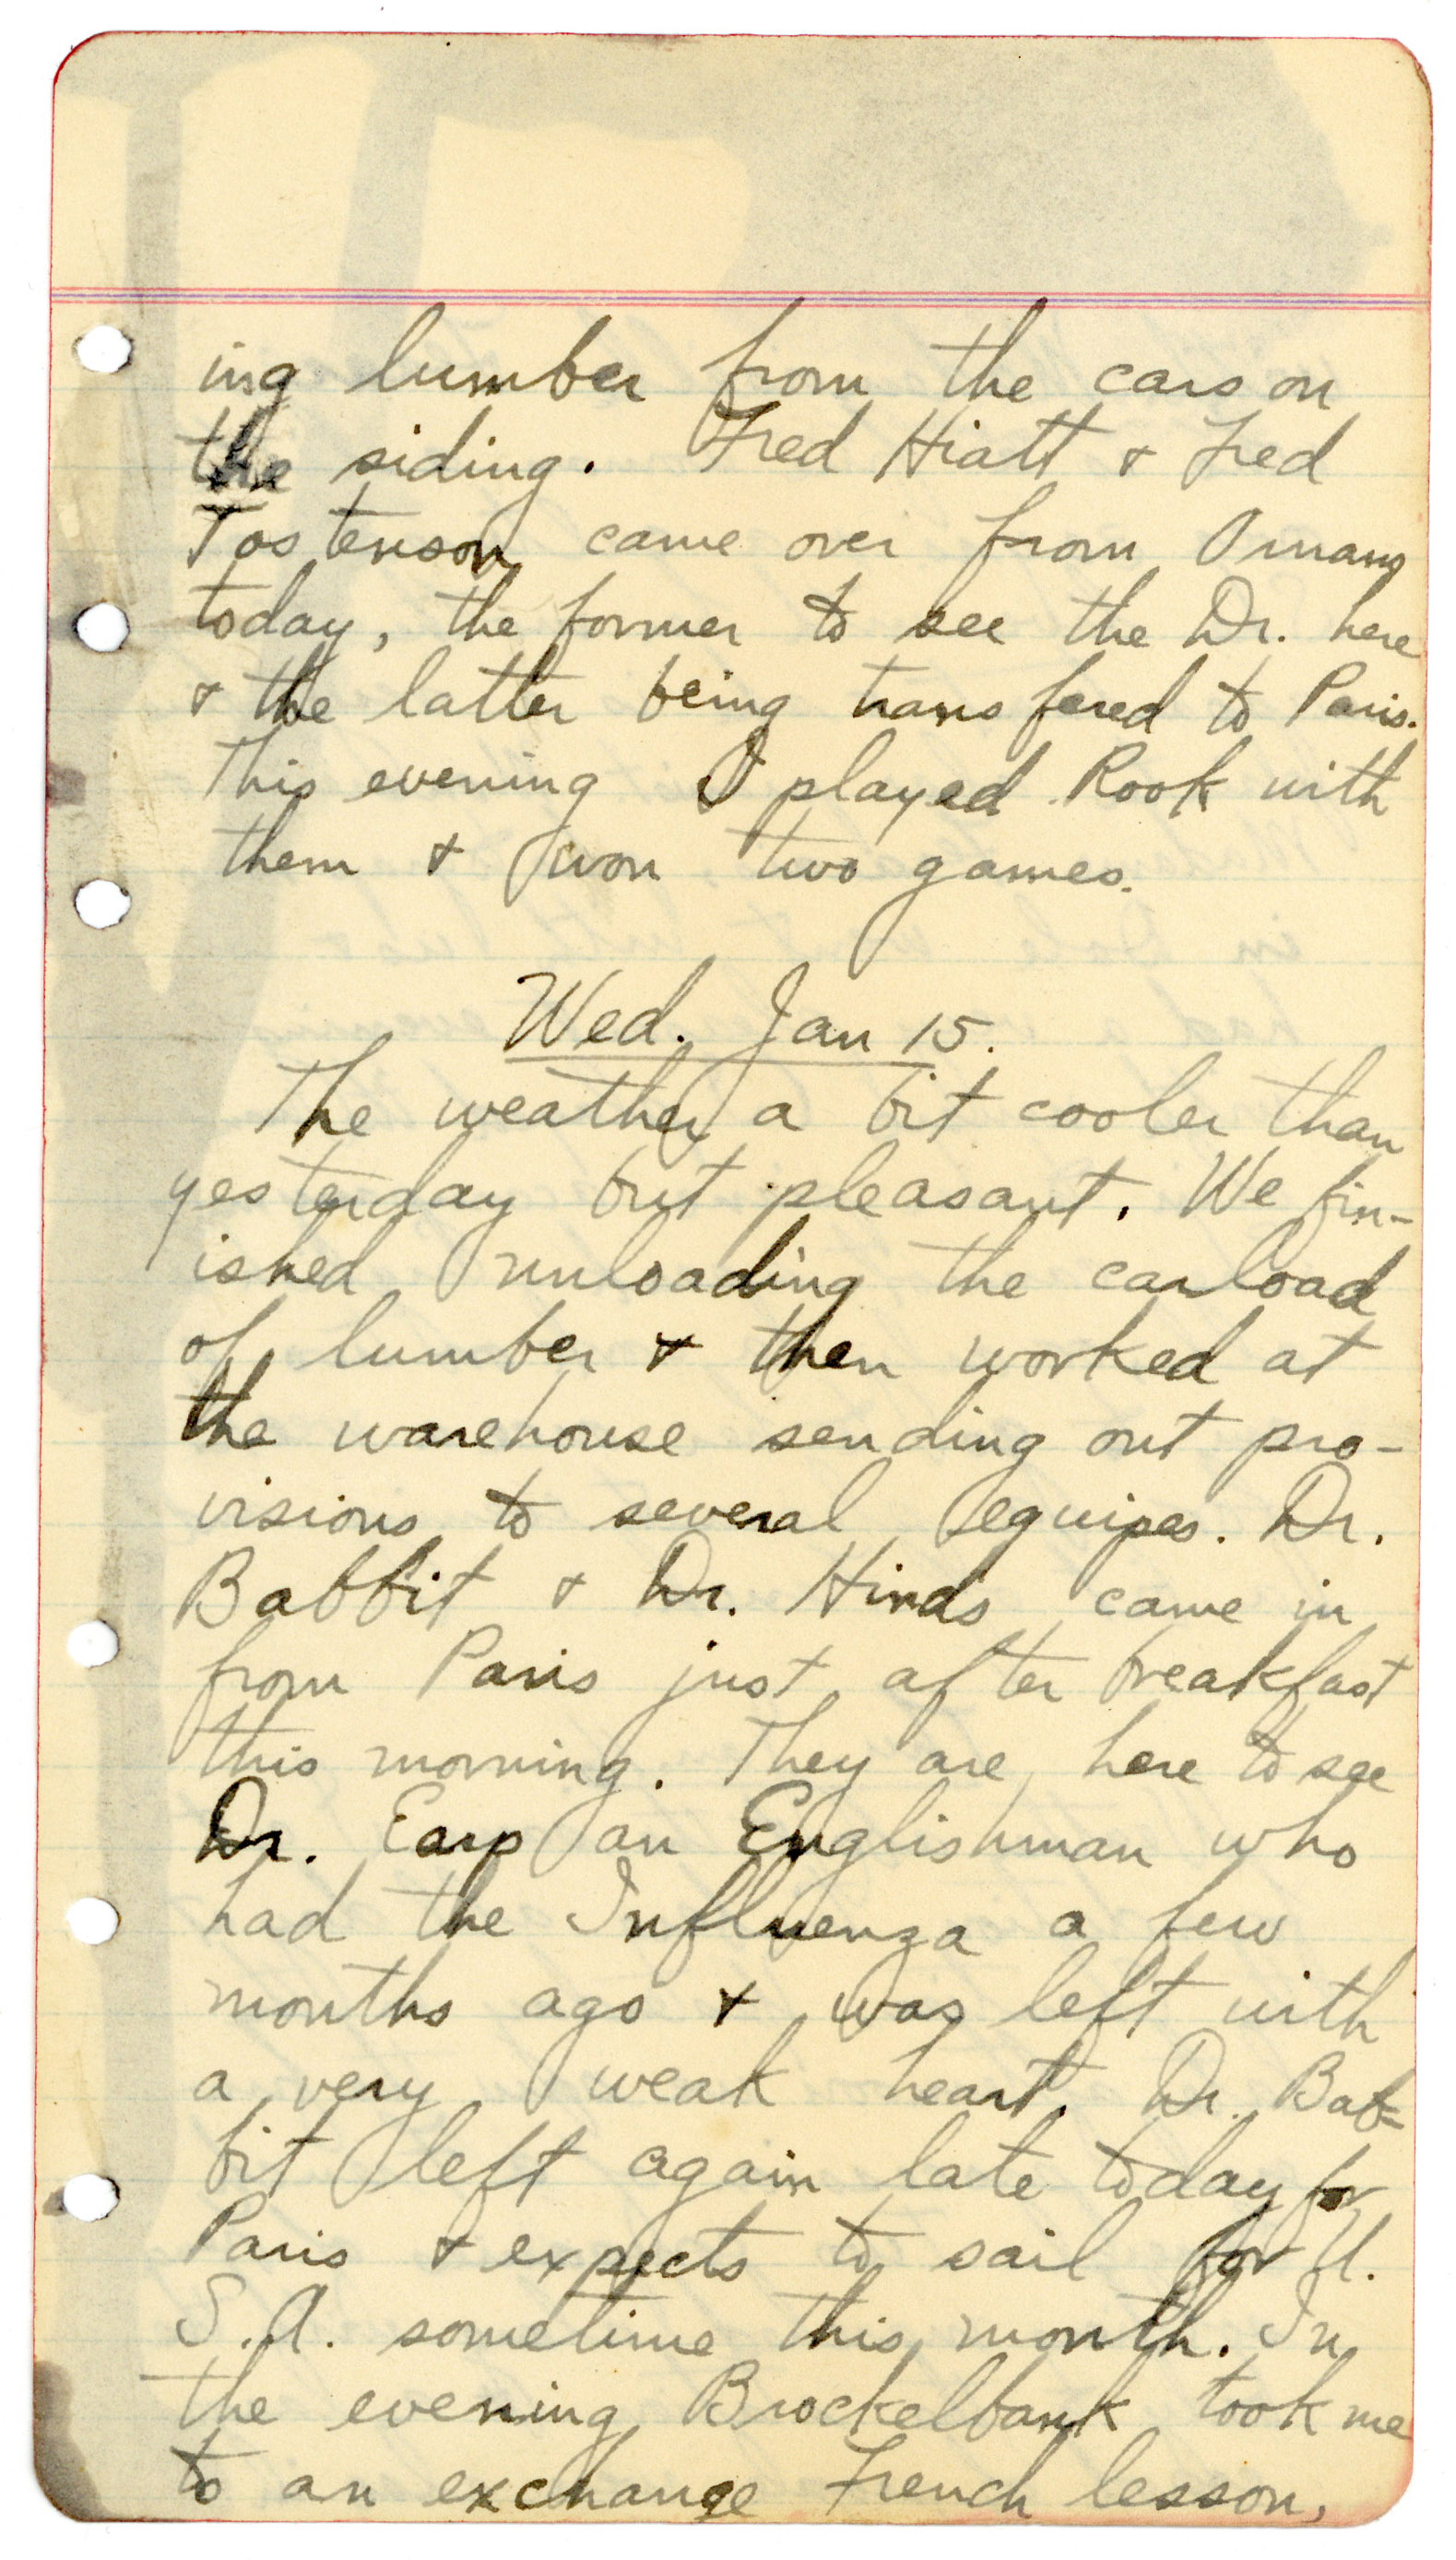 ing lumber from the cars on
the siding. Fred Hiatt & Fred
Tostenson came over from Ornans
today, the former to see the Dr. here
& the latter being transfered to Paris.
This evening I played Rook with
them & won two games.
Wed. Jan 15.
The weather a bit cooler than
yesterday but pleasant. We fin-
ished unloading the carload
of lumber & then worked at
the warehouse sending out pro-
visions to several equipes. Dr.
Babbit & Dr. Hinds came in
from Paris just after breakfast
this morning. They are here to see
Dr. Earp an Englishman who
had the Influenza a few
months ago & was left with
a very weak heart. Dr. Bab-
bit left again late today for
Paris & expects to sail for U.
S.A. sometime this month. In
the evening Brockelbank took me
to an exchange French lesson,